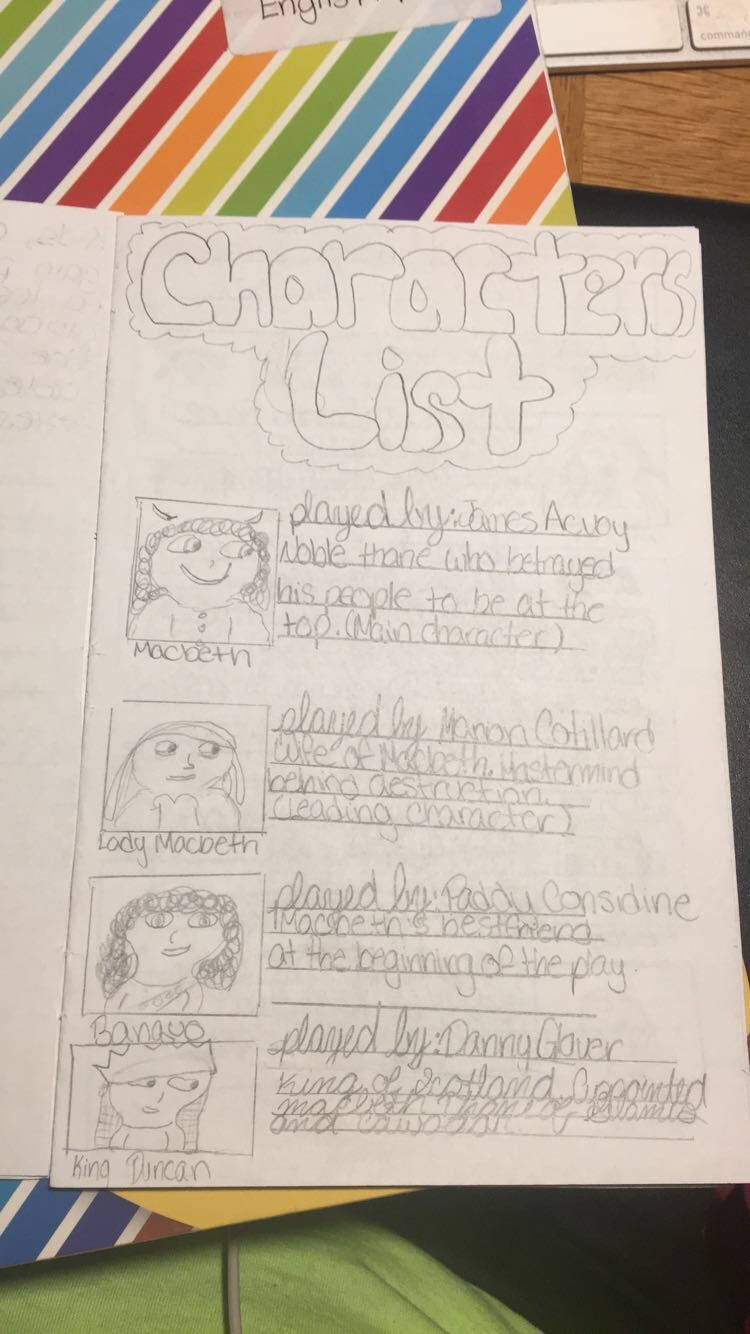 Englis
⌘
comman
Characters
List
played by: James Acvoy
Noble thane who betrayed
his people to be at the
top. (Main character)
Macbeth
played by Marion Cotillard
Wife of Macbeth. Mastermind
behind destruction.
(Leading character)
Lady Macbeth
played by: Paddy Considine
Macbeth's bestfriend
at the beginning of the play.
Banquo
played by: Danny Glover
King of Scotland. Appointed
macbeth thane of Glamis
and Cawdor.
King Duncan